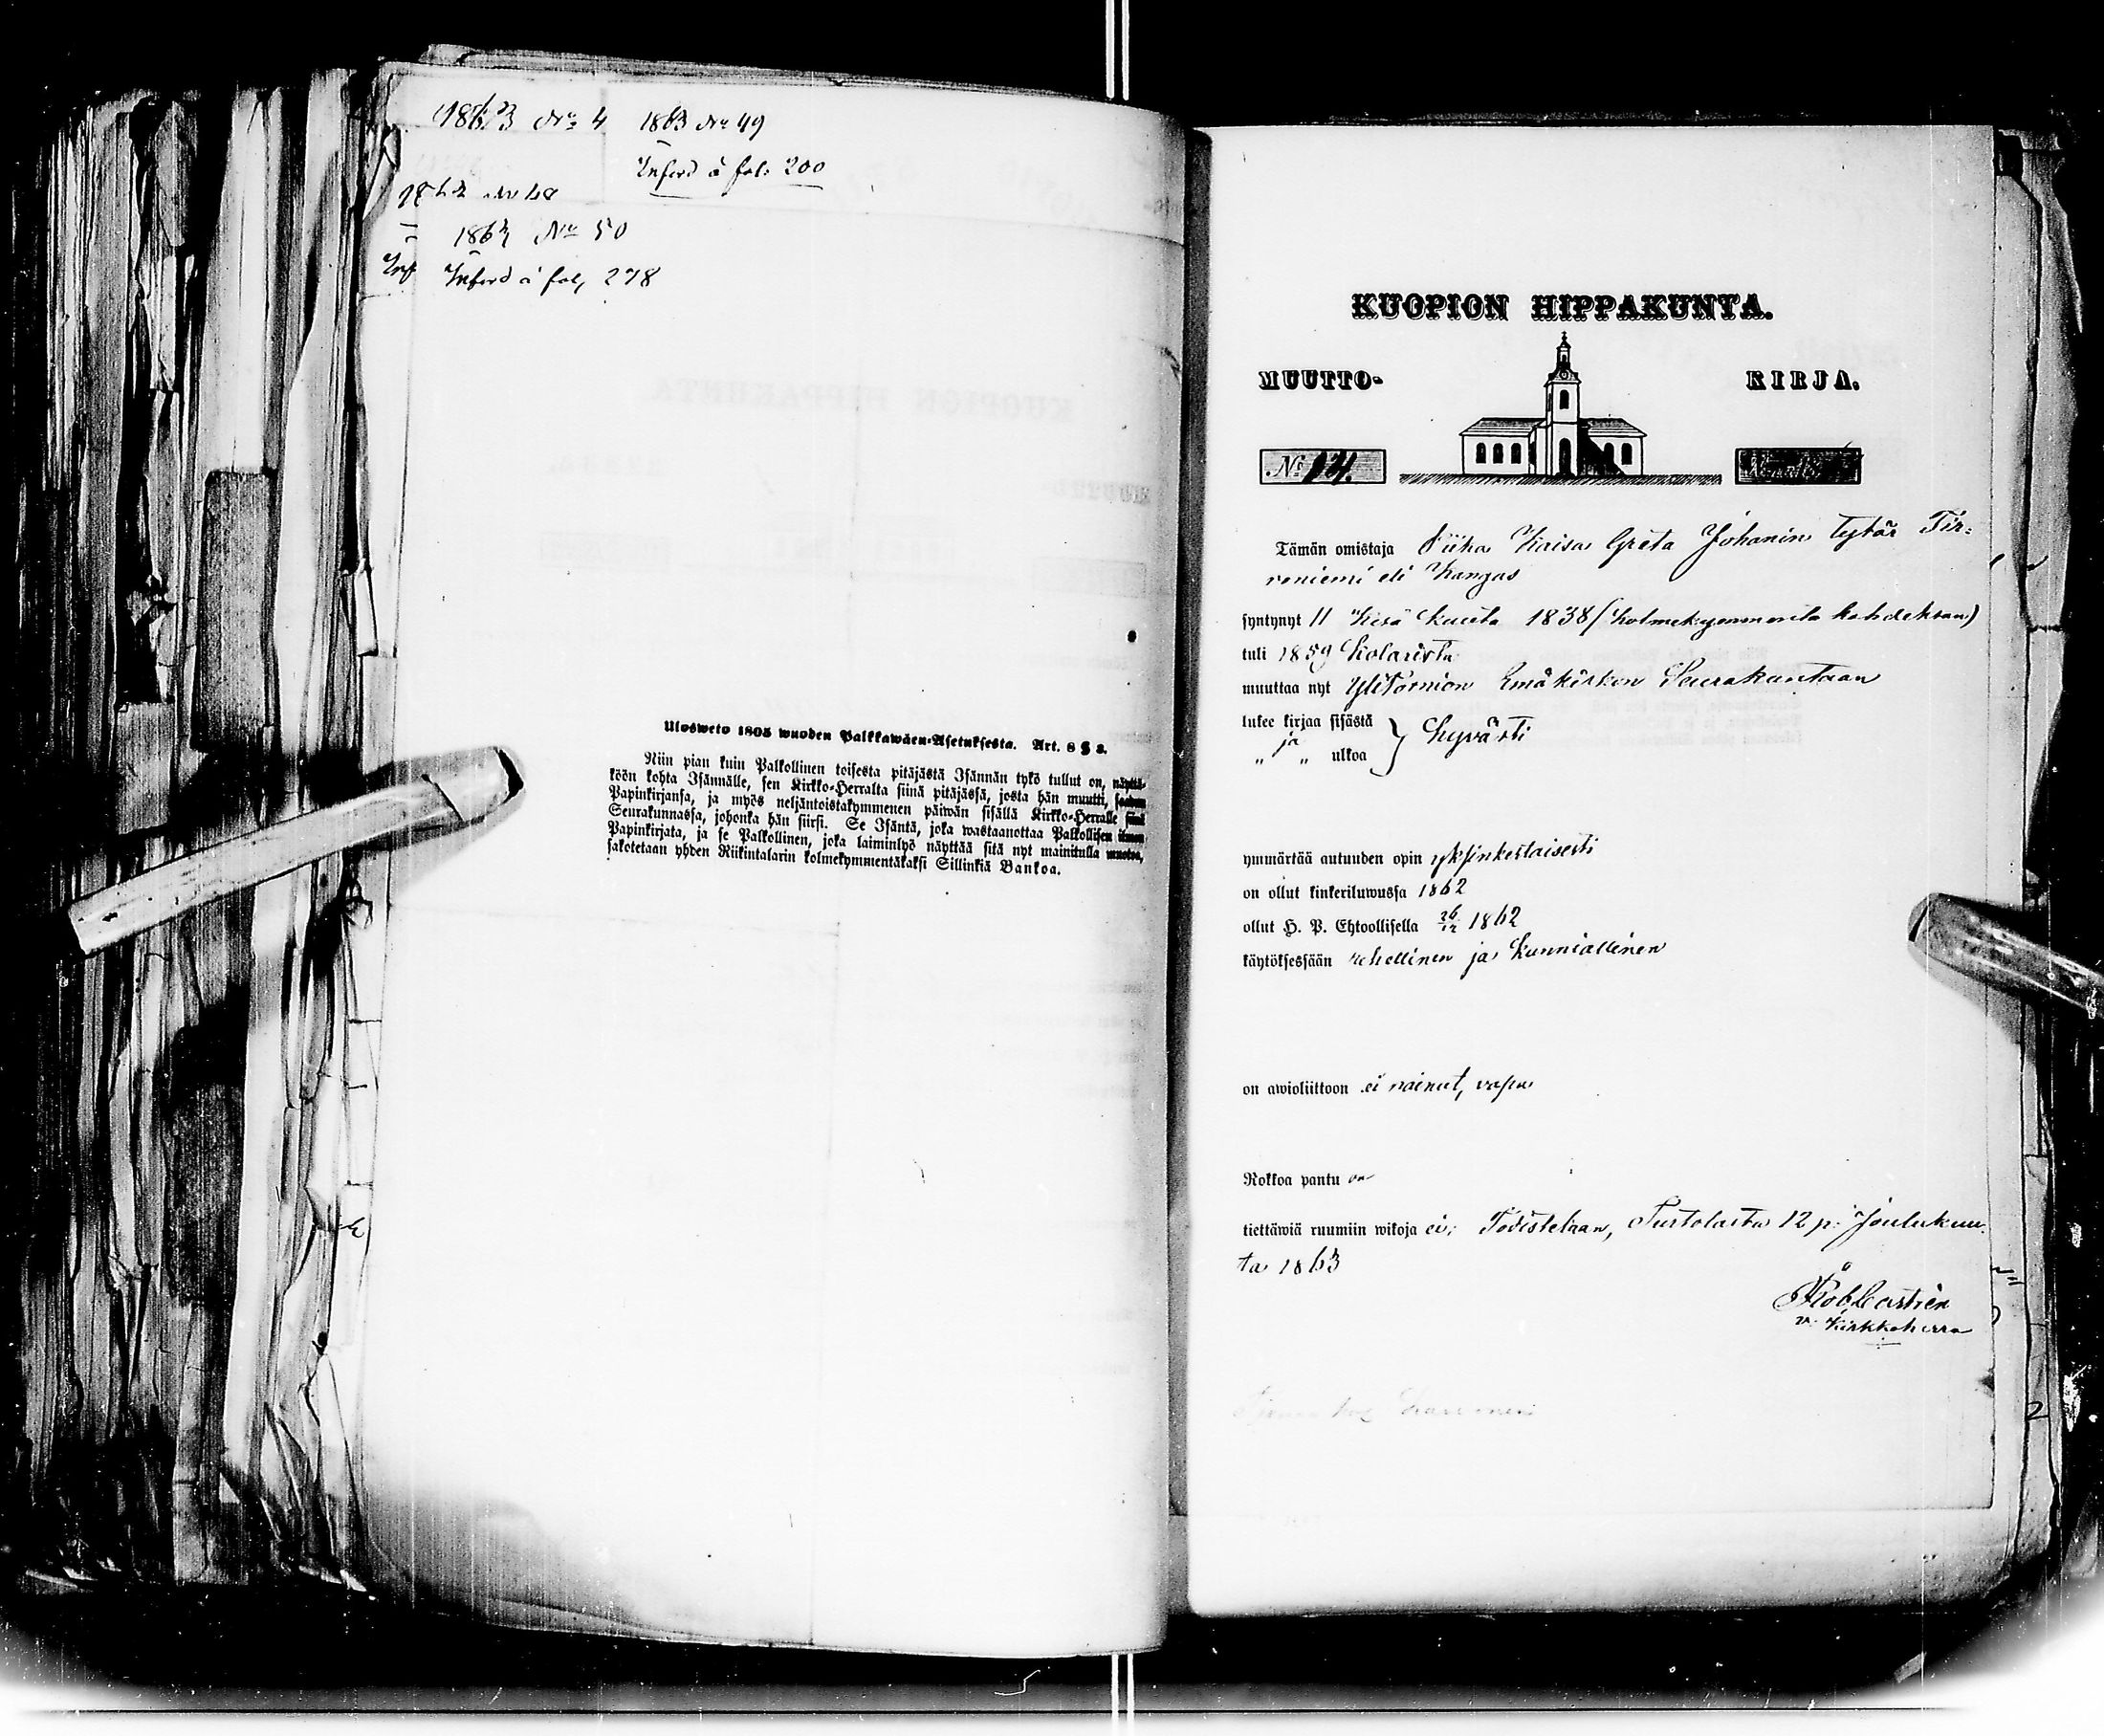 1863 No 4
1863 No 49
Inford å fol. 200
1863 No 50
Inf
Inford å fol. 278
Ulosweto 1805 wuoden Palkkawäen-Asetuksesta. Art. 8 § 2.
Niin pian kuin Palkollinen toisesta pitäjästä Isännän tykö tullut on, näyttä-
köön kohta Isännälle, sen Kirkko-Herralta siinä pitäjässä, josta hän muutti, saadun
Papinkirjansa, ja myös neljäntoistakymmenen päiwän sisällä Kirkko-Herralle siinä
Seurakunnassa, johonka hän siirsi. Se Isäntä, joka wastaanottaa Palkollisen ilman
Papinkirjata, ja se Palkollinen, joka laiminlyö näyttää sitä nyt mainitulla muotoa,
sakotetaan yhden Riikintalarin kolmekymmentäkaksi Sillinkiä Bankoa.
KUOPION HIPPAKUNTA.
MUUTTO- KIRJA.
No
Tämän omistaja Piika Kaisa Greta Johanin tytär
eli Kangas
syntynyt 11 Kesä kuuta 1838 (kolmekymmentä kahdeksan)
tuli 1859 Kolarista
muuttaa nyt YliTornion Emäkirkon Seurakuntaan
lukee kirjaa sisästä
ja } hyvästi
„ „ ulkoa
ymmärtää autuuden opin yksinkertaisesti
on ollut kinkeriluwussa 1862
ollut H. P. Ehtoollisella 26/12 1862
käytöksessään rehellinen ja kunniallinen
on awioliittoon ei nainut, vapa
Rokkoa pantu on
tiettäwiä ruumiin wikoja ei; Todistetaan, Turtolasta 12 p: Joulukuu-
ta 1863
v. Kirkkoherra